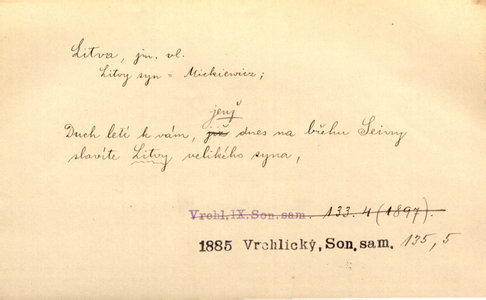 Litva, jm. vl.
Litvy syn = Mickiewicz;
jenž
Duch letí k vám, již dnes na břehu Seiny
slavíte Litvy velikého syna,
Vrchl. IX. Son. sam. 133. 4 (1897).
1885 Vrchlický, Son. sam. 135, 5